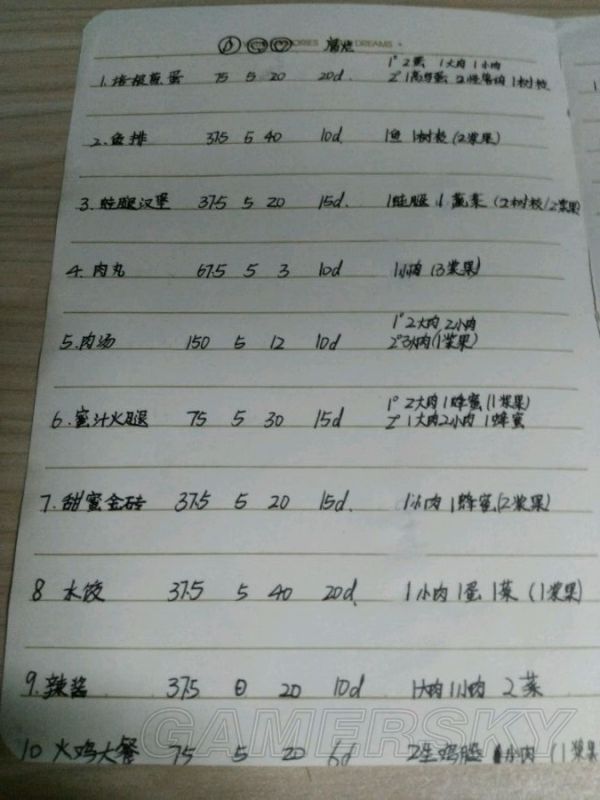 DREAMS 腐烂
1° 2蛋 1大肉 1小肉
1. 培根煎蛋 75 5 20 20d 2° 1高鸟蛋 2怪兽肉 1树枝
2. 鱼排 37.5 5 40 10d 1鱼 1树枝 (2浆果)
3. 蛙腿汉堡 37.5 5 20 15d. 1蛙腿 1蔬菜 (2树枝/2浆果)
4. 肉丸 67.5 5 3 10d 1小肉 (3浆果)
1° 2大肉 2小肉
5. 肉汤 150 5 12 10d 2° 3小肉 (1浆果)
1° 2大肉 1蜂蜜 (1浆果)
6. 蜜汁火腿 75 5 30 15d 2° 1大肉 2小肉 1蜂蜜
7. 甜蜜金砖 37.5 5 20 15d. 1小肉 1蜂蜜 (2浆果)
8 水饺 37.5 5 40 20d 1小肉 1蛋 1菜 (1浆果)
9. 辣酱 37.5 0 20 10d 1大肉 1小肉 2菜
10 火鸡大餐 75 5 20 6d 2生鸡腿 1小肉 (1浆果
GAMERSKY